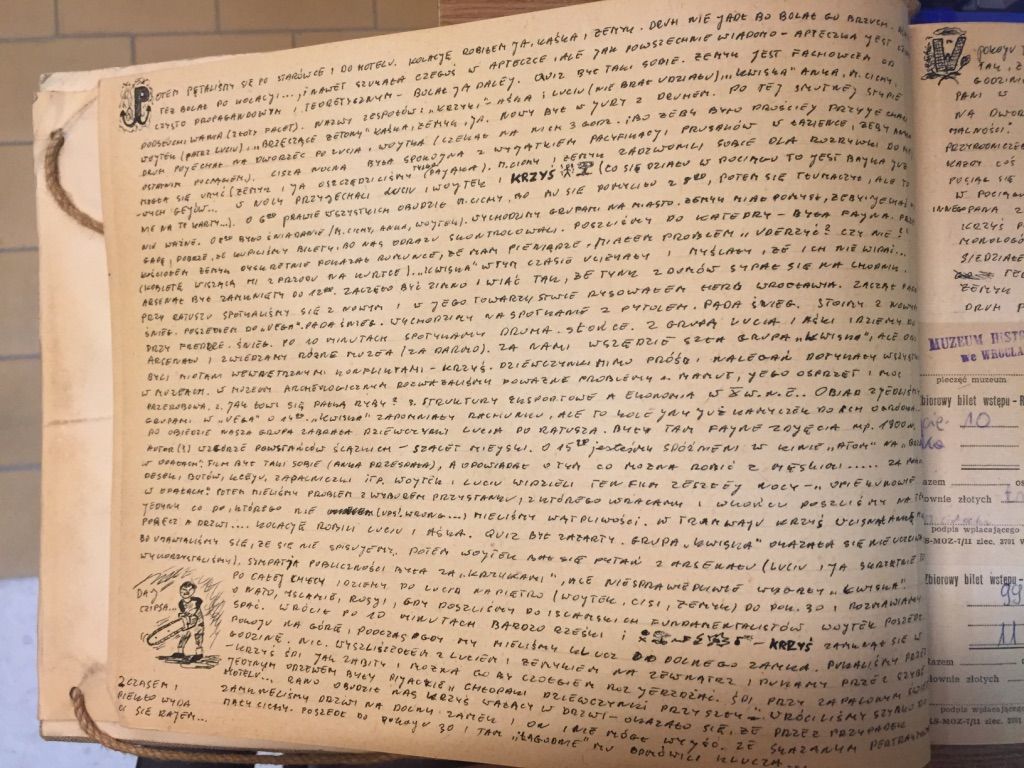 POTEM PĘTALIŚMY SIĘ PO STARÓWCE I DO HOTELU. KOLACJĘ ROBIŁEM JA, KAŚKA I ZEMYK. DRUH NIE JADŁ BO BOLAŁ GO BRZUCH.
TEŻ BOLAŁ PO KOLACJI..., I NAWET SZUKAŁA CZEGOŚ W APTECZCE, ALE JAK POWSZECHNIE WIADOMO - APTECZKA JEST
CZYSTO PROPAGANDOWYM I TEORETYCZNYM - BOLAŁ JĄ DALEJ. QUIZ BYŁ TAKI SOBIE. ZEMYK JEST FACHOWCEM OD
PODSŁUCHIWANIA (ZŁOTY PALEC). NAZWY ZESPOŁÓW: "KRZYKI" - AŚKA I LUCIU (NIE BRAŁ UDZIAŁU), "KWIŚKA" ANKA, M. CICHY,
WOJTEK (PATRZ LUCIU), "BRZĘCZĄCE ŻETONY" KAŚKA, ZEMYK, JA. NOWY BYŁ W JURY Z DRUHEM. PO TEJ SMUTNEJ
DRUH POJECHAŁ NA DWORZEC PO LUCIA, WOJTKA (CZEKAŁ NA NICH 3 GODZ. IBO ŻEBY BYŁO PROŚCIEJ PRZYJECHALI
OSTATNIM POCIĄGIEM). CISZA NOCNA BYŁA SPOKOJNA Z WYJĄTKIEM PACYFIKACJI PRUSAKÓW W ŁAZIENCE, ŻEBY ANKA
MOGŁA SIĘ UMYĆ (ZEMYK I JA OSZCZĘDZILIŚMY TYLKO PAJĄKA). M. CICHY I ZEMYK ZADZWONILI SOBIE DLA ROZRYWKI DO
W NOCY PRZYJECHALI LUCIU I WOJTEK I KRZYŚ (CO SIĘ DZIAŁO W POCIĄGU TO JEST BAJKA JUŻ
NIE NA TE KARTY...). O 6 PRAWIE WSZYSTKICH OBUDZIŁ M. CICHY, BO MU SIĘ POMYLIŁO Z 8, POTEM SIĘ TŁUMACZYŁ, ALE TO
NIC WAŻNE. O BYŁO ŚNIADANIE (M. CICHY, ANKA, WOJTEK). WYCHODZIMY GRUPAMI NA MIASTO. ZEMYK MIAŁ POMYSŁ, ŻEBY JECHAĆ
GAPĘ, DOBRZE, ŻE KUPILIŚMY BILETY, BO NAS ODRAZU SKONTROLOWALI. POSZLIŚMY DO KATEDRY - BYŁA FAJNA.
KOŚCIOŁEM ZEMYK DYSKRETNIE POKAZAŁ RUMUNCE, ŻE MAM PIENIĄDZE, MIAŁEM PROBLEM "UDERZYĆ? CZY NIE?"
(KOBIETĘ WISZĄCĄ MI Z PRZODU NA KURTCE)... "KWIŚKA" W TYM CZASIE UCIEKAŁY I MYŚLAŁY, ŻE ICH NIE WIDAĆ...
ARSENAŁ BYŁ ZAMKNIĘTY DO 12. ZACZĘŁO BYĆ ZIMNO I WIAĆ TAK, ŻE TYNK Z DOMÓW SYPAŁ SIĘ NA CHODNIK.
PRZY RATUSZU SPOTKALIŚMY SIĘ Z NOWYM I W JEGO TOWARZYSTWIE RYSOWAŁEM HERB WROCŁAWIA. ZACZĄŁ PADAĆ
ŚNIEG. POSZEDŁEM DO "VEGA". PADA ŚNIEG. WYCHODZIMY NA SPOTKANIE Z PYTOLEM. PADA ŚNIEG. STOIMY Z NOWYM
PRZY FREDRZE. ŚNIEG. PO 10 MINUTACH SPOTYKAMY DRUHA. SŁOŃCE. Z GRUPĄ LUCIA I AŚKI IDZIEMY DO
ARSENAŁU I ZWIEDZAMY RÓŻNE MUZEA (ZA DARMO). ZA NAMI WSZĘDZIE SZŁA GRUPA "KWIŚKA", ALE ONI
BYLI MIOTANI WEWNĘTRZNYMI KONFLIKTAMI - KRZYŚ. DZIEWCZYNKI MIMO PRÓŚB I NALEGAŃ DOTYKAŁY WSZYSTKO
W MUZEACH. W MUZEUM ARCHEOLOGICZNYM ROZWAŻALIŚMY POWAŻNE PROBLEMY 1. MAMUT, JEGO OSPRZĘT I MOC
PRZEROBOWA, 2. JAK ŁOWI SIĘ PAŁKĄ RYBY? 3. STRUKTURY EKSPORTOWE A EKONOMIA W X W. N.E.. OBIAD ZJEDLIŚMY
GRUPAMI. W "VEGA" O 14. "KWIŚKA" ZAPOMNIAŁY RACHUNKU, ALE TO KOLEJNY JUŻ KAMYCZEK DO ICH OGRÓDKA.
PO OBIEDZIE NASZA GRUPA ZABRAŁA DZIEWCZYNY LUCIA DO RATUSZA. BYŁY TAM FAJNE ZDJĘCIA NP. 1900R,
AUTOR(!) WZGÓRZE POWSTAŃCÓW ŚLĄZKICH - SZALET MIEJSKI. O 15 jesteśmy SPÓŹNIENI W KINIE "ATOM" NA
W OPAŁACH". FILM BYŁ TAKI SOBIE (ANKA PRZESPAŁA), A OPOWIADAŁ O TYM CO MOŻNA ROBIĆ Z MĘSKIMI.....
DESEK, BUTÓW, KLEJU, ZAPALNICZKI ITP. WOJTEK I LUCIU WIDZIELI TEN FILM ZESZŁEJ NOCY - "OPIEKUNOWIE
W OPAŁACH". POTEM MIELIŚMY PROBLEM Z WYBOREM PRZYSTANKU, Z KTÓREGO WRACAMY I WKOŃCU POSZLIŚMY NA
JEDYNY CO DO KTÓREGO NIE (UPS! WRONG...) MIELIŚMY WĄTPLIWOŚCI. W TRAMWAJU KRZYŚ WCISNĄŁ ANKĘ
PORĘCZ A DRZWI.... KOLACJĘ ROBILI LUCIU I AŚKA. QUIZ BYŁ ZAŻARTY. GRUPA "KWIŚKA" OKAZAŁA SIĘ NIEUCZCIWA
BO UMAWIALIŚMY SIĘ, ŻE SIĘ NIE SPISUJEMY. POTEM WOJTEK BAŁ SIĘ PYTAŃ Z ARSENAŁU (LUCIU I JA SKRZĘTNIE TO
WYKORZYSTALIŚMY). SYMPATIA PUBLICZNOŚCI BYŁA ZA "KRZYKAMI", ALE NIESPRAWIEDLIWIE WYGRAŁY "KWIŚKA".
PO CAŁEJ CHĘCY IDZIEMY DO LUCIA NA PIĘTRO (WOJTEK, CISI, ZEMYK) DO POK. 30 I ROZMAWIAMY
O NATO, ISLAMIE, ROSJI, GDY DOSZLIŚMY DO ISLAMSKICH FUNDAMENTALISTÓW WOJTEK POSZEDŁ
SPAĆ. WRÓCIŁ PO 10 MINUTACH BARDZO RZEŚKI I - KRZYŚ ZAMKNĄŁ SIĘ W
POKOJU NA GÓRĘ, PODCZAS GDY MY MIELIŚMY KLUCZ DO DOLNEGO ZAMKA. PUKALIŚMY PRZEZ
GODZINĘ. NIC. WYSZLIŚMY Z LUCIEM I ZEMYKIEM NA ZEWNĄTRZ I PUKAMY PRZEZ SZYBĘ
- KRZYŚ ŚPI JAK ZABITY I MOŻNA GO BY CZOŁGIEM ROZJEŻDŻAĆ. ŚPI PRZY ZAPALONYM ŚWIETLE
JEDYNYM ODZEWEM BYŁY PIJACKIE "CHŁOPAKI DZIEWCZYNKI PRZYSZŁY". WRÓCILIŚMY SZYBKO DO
HOTELU... RANO OBUDZIŁ NAS KRZYŚ WALĄCY W DRZWI - OKAZAŁO SIĘ, ŻE PRZEZ PRZYPADEK
ZAMKNĘLIŚMY DRZWI NA DOLNY ZAMEK I ON NIE MÓGŁ WYJŚĆ. ZE SKAZANYM PERTRAKTOWAŁ
MAŁY CICHY. POSZEDŁ DO POKOJU 30 I TAM "ŁAGODNIE" MU ODMÓWILI KLUCZA...
DAJ
CZIPSA...
Z CZASEM I
PIEKŁO WYDA
CI SIĘ RAJEM...
W POKOJU
TAK, Ż
GODZINI
PANI W
NA DWOR
MALNOŚCI!
PRZYRODNICZE
KAŻDY COŚ
POSIAŁ SIĘ
W POCIĄGU
INNEGO PANA Z
KRZYŚ P
MONOLOGÓ
SIEDZIAŁE
TEG
ZEMYK
DRUH P
MUZEUM HIST
we WROCŁA
pieczęć muzeum
biorowy bilet wstępu - R
10
azem
os
łownie złotych
podpis wpłacającego
S-MOZ-1/11 zlec. 3791 W
Zbiorowy bilet wstępu -
99
11
Razem
łownie złotych
podpis wpłacającego
S-MOZ-7/11 zlec. 3791